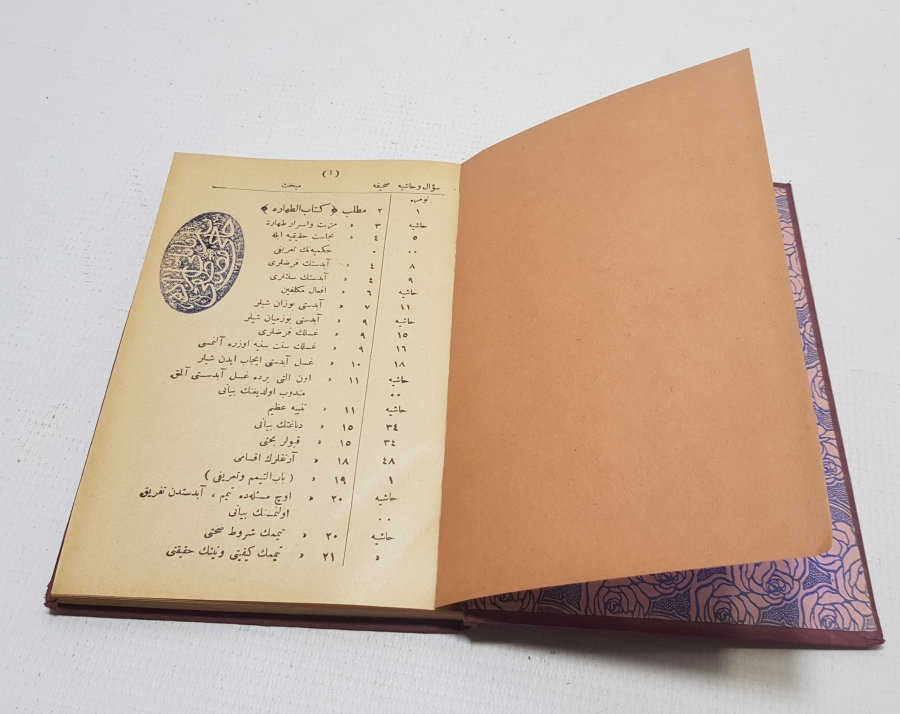 (١)
سؤال وحاشیه صحیفه مبحث
نومرہ
١ ٢ مطلب ﴿ كتاب الطهاره ﴾
حاشیه ٣ » مزیت واسرار طهارة
٥ ٤ » نجاست حقیقیه ایله
٠٠ ٠ حکمیه‌نك تعریفی
٨ ٤ » آبدستك فرضلری
٩ ٤ » آبدستك سنتلری
حاشیه ٦ » افعال مكلفین
١١ ٧ » آبدستی بوزان شیلر
حاشیه ٩ » آبدستی بوزمیان شیلر
١٥ ٩ » غسلك فرضلری
١٦ ٩ » غسلك سنت سنیه اوزره آلنمسی
١٨ ١٠ » غسل آبدستی ایجاب ایدن شیلر
حاشیه ١١ » اون التی یرده غسل آبدستی آلمق
٠٠ مندوب اولدیغنك بیانی
حاشیه ١١ » تنبیه عظیم
٣٤ ١٥ » دباغتك بیانی
٣٤ ١٥ » قیولر بحثی
٤٨ ١٨ » آرتقلرك اقسامی
١ ١٩ » ( باب التیمم وتعریفی )
حاشیه ٢٠ » اوچ مسئله‌ده تیمم ، آبدستدن تفریق
٠٠ اولنمسنك بیانی
حاشیه ٢٠ » تیممك شروط صحتی
» ٢١ » تیممك كیفیتی ونیتك حقیقتی